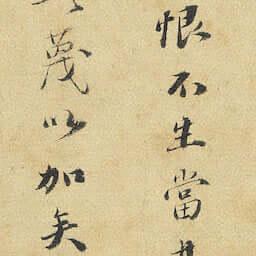 恨不生當
蔑以加矣